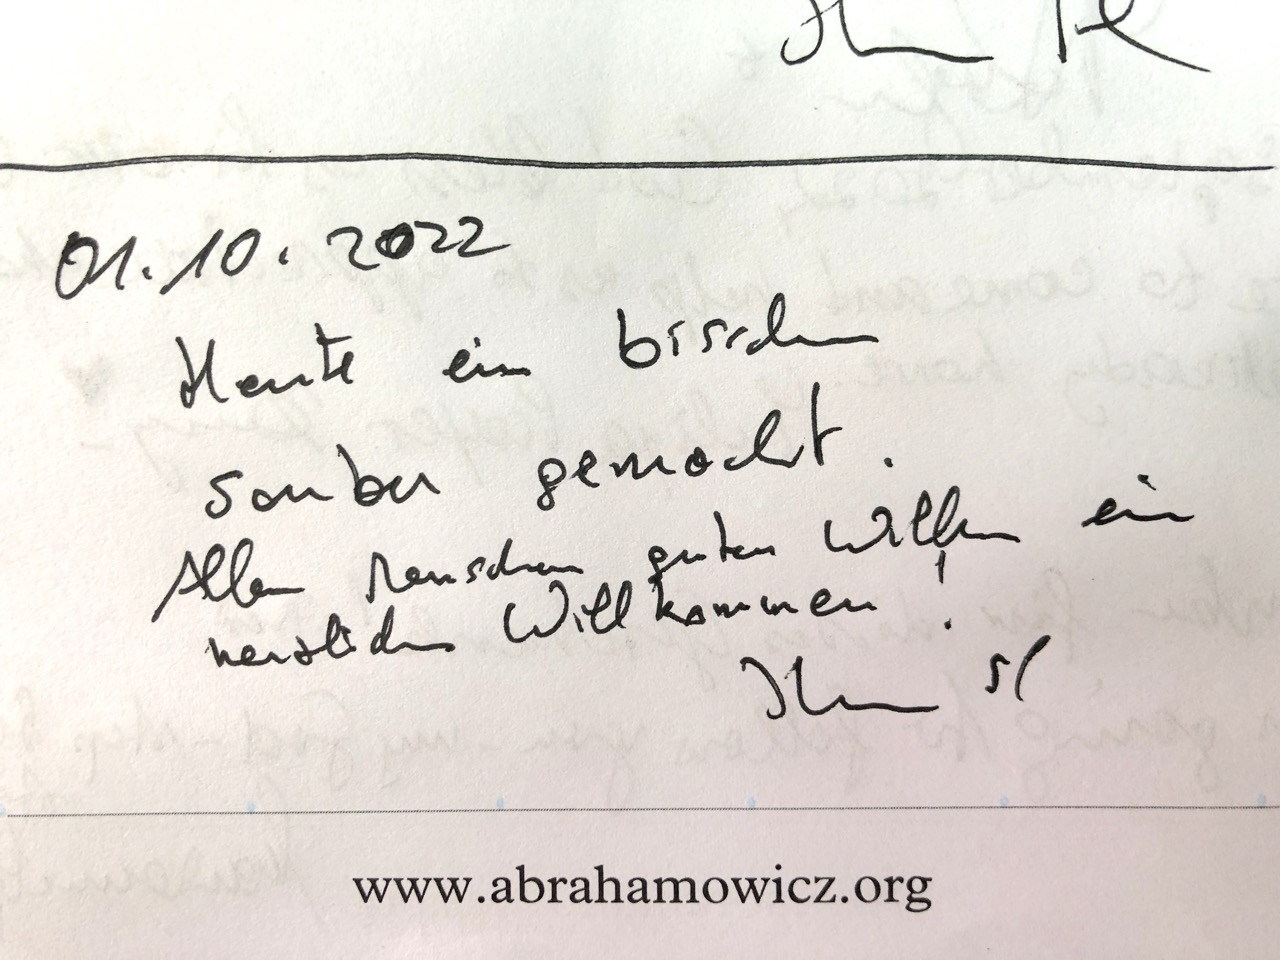 01.10.2022
Heute ein bisschen
sauber gemacht.
Allen Menschen guten Willen ein
herzliches Willkommen!
www.abrahamowicz.org